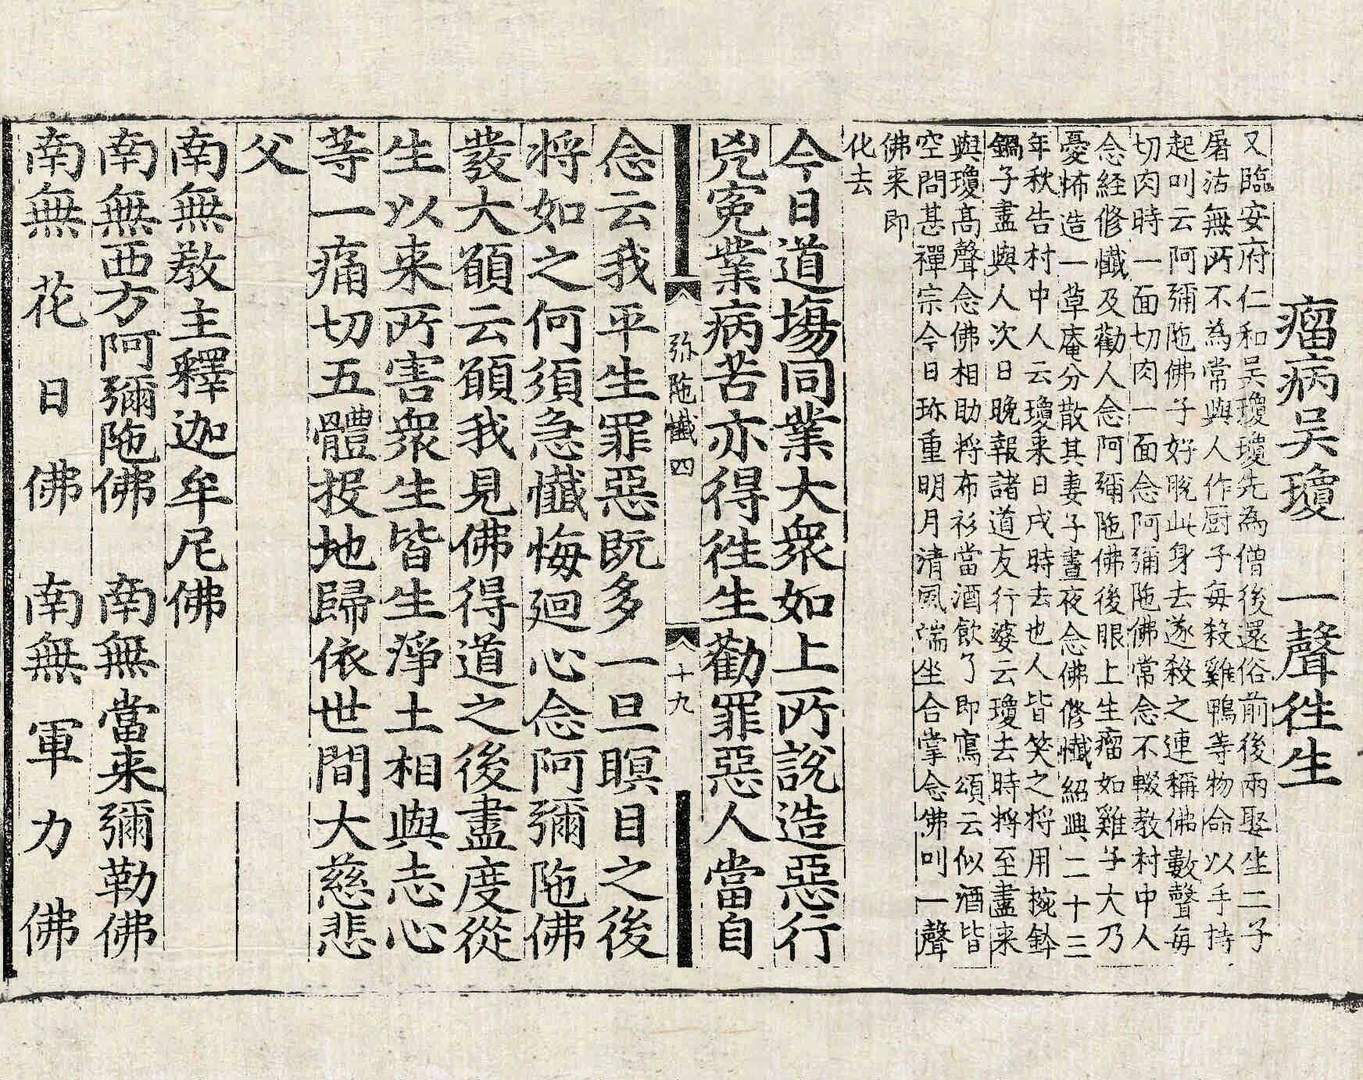 瘤病吴瓊　一聲徃生
又臨安府仁和吴瓊瓊先為僧後還俗前後兩娶坐二子
屠沽無所不為常與人作厨子每殺雞鴨等物命以手持
起叫云阿彌陁佛子好脫此身去遂殺之連稱佛數聲每
切肉時一面切肉一面念阿彌陁佛常念不輟教村中人
念経修懺及勸人念阿彌陁佛後眼上生瘤如雞子大乃
憂怖造一草庵分散其妻子晝夜念佛修懺紹興二十三
年秋告村中人云瓊来日戌時去也人皆笑之将用椀鈴
鍋子盡與人次日晚報諸道友行婆云瓊去時将至盡来
與瓊髙聲念佛相助将布衫當酒飲了即寫頌云似酒皆
空問甚禪宗今日珎重明月清風端坐合掌念佛叫一聲
佛来即
化去
今日道塲同業大衆如上所說造惡行
兇寃業病苦亦得徃生勸罪惡人當自
弥陁懺四
十九
念云我平生罪惡既多一旦瞑目之後
将如之何須急懺悔廻心念阿彌陁佛
發大願云願我見佛得道之後盡度從
生以来所害衆生皆生淨土相與志心
等一痛切五體投地歸依世間大慈悲
父
南無教主釋迦牟尼佛
南無西方阿彌陁佛　南無當来彌勒佛
南無花日佛　南無軍力佛